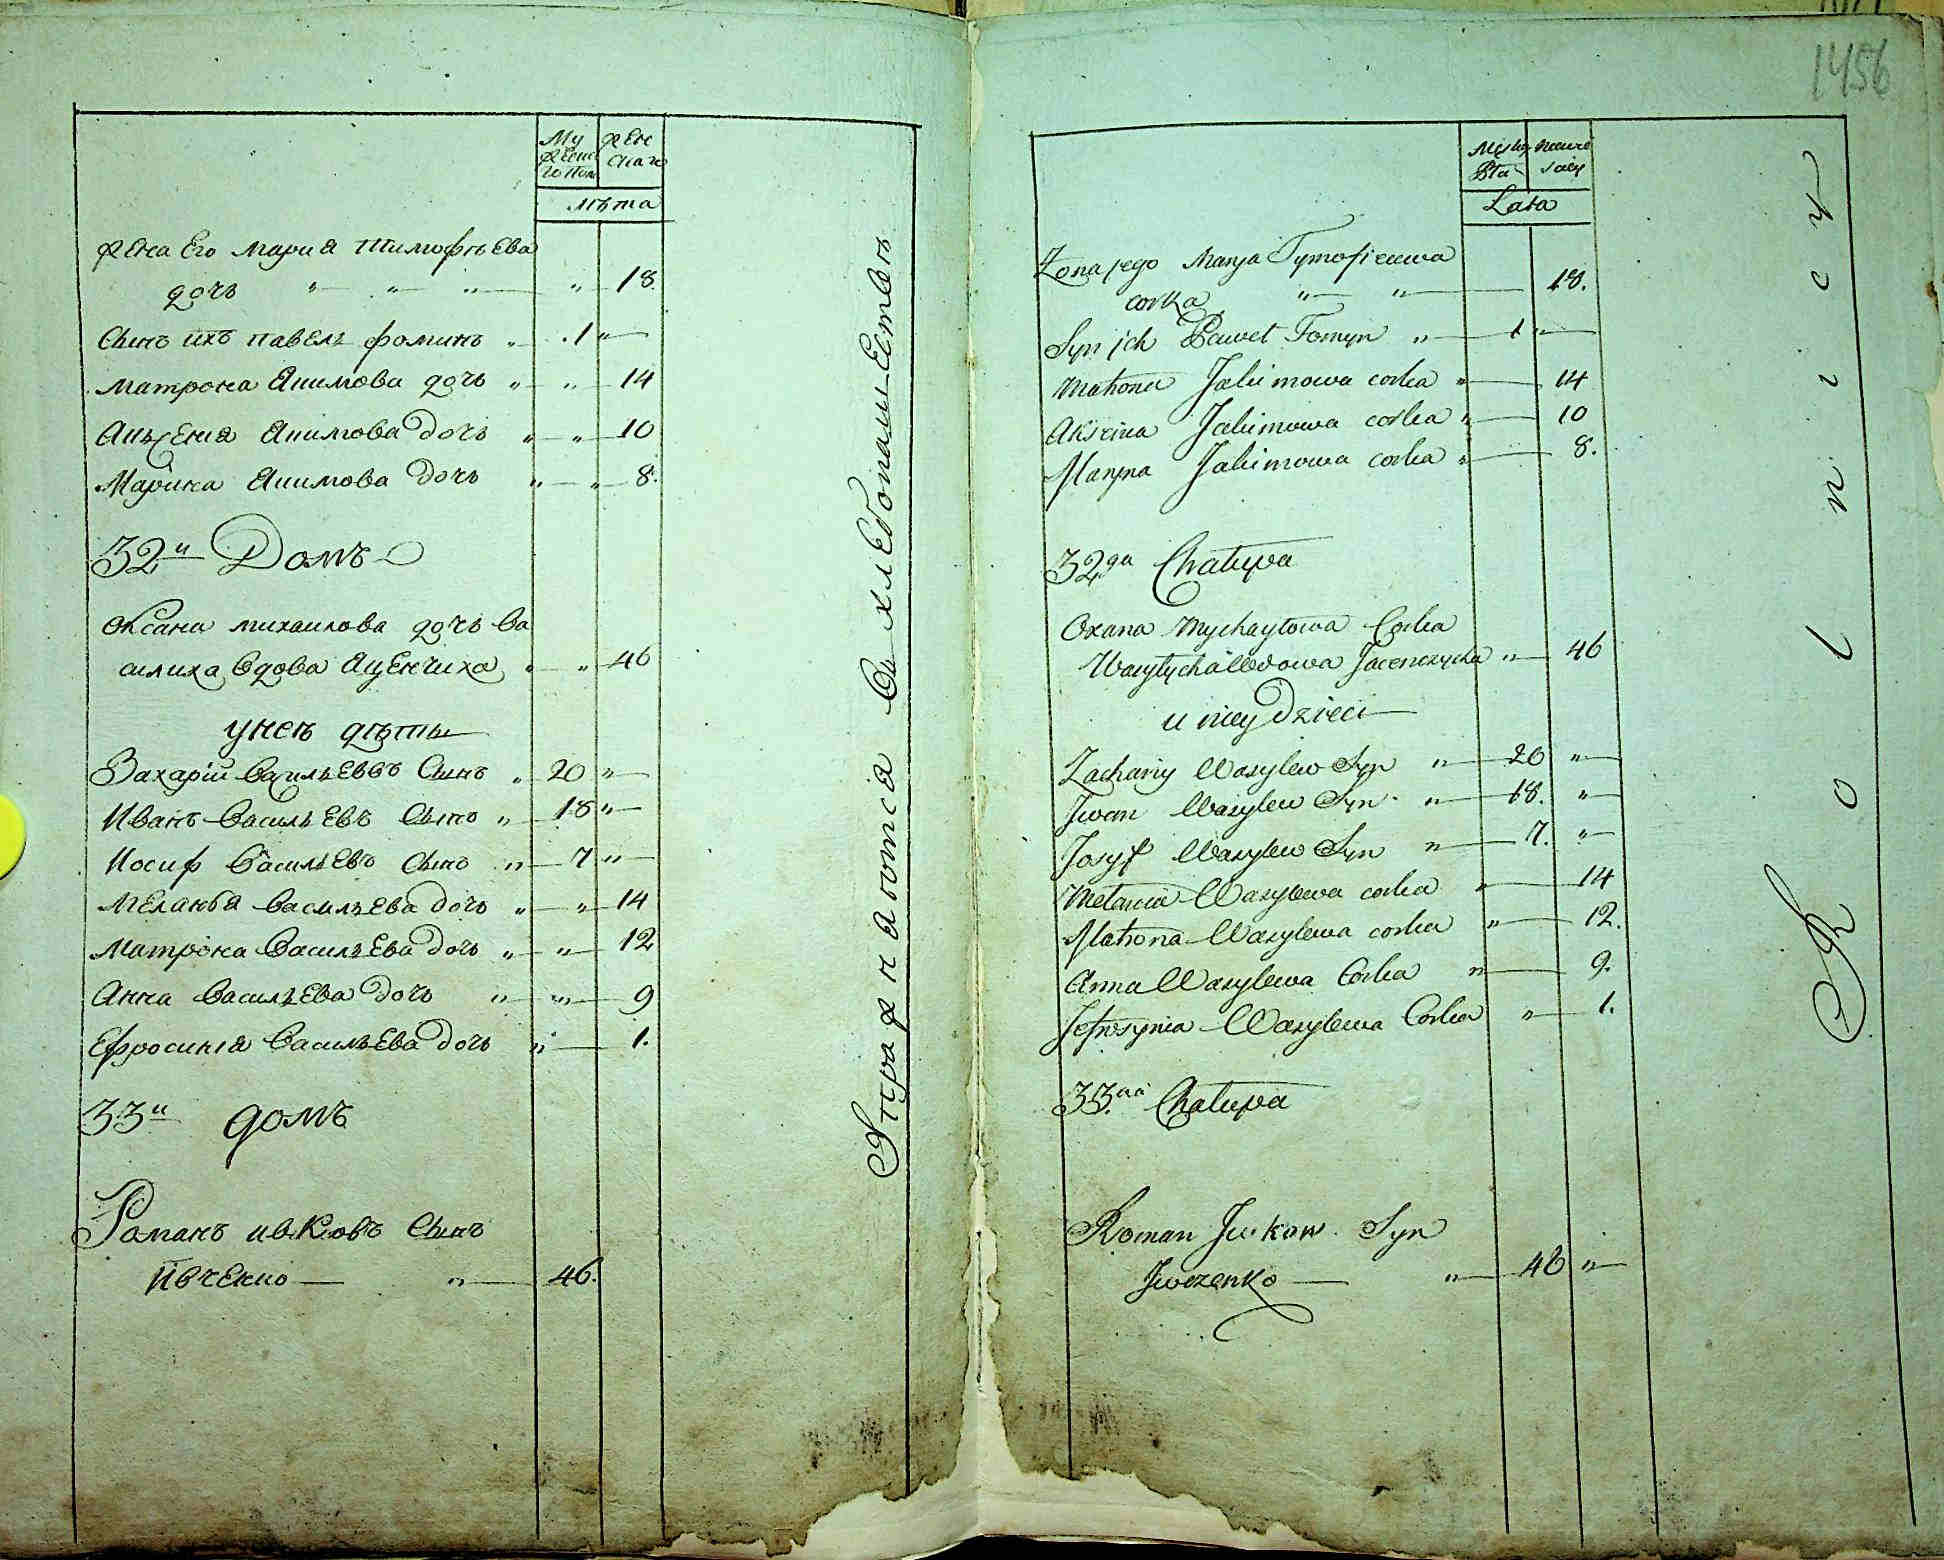 Му
жеска
го пола
жен
скаго
лѣта
жена Его Мариа Тимофѣева
дочь " " " " 18.
Сынъ ихъ павелъ фоминъ " 1 "
Матрона Акимова дочь " " 14
Аксениа Акимова дочь " " 10
Марина Акимова дочь " " 8.
32й Домъ
Оксана михаилова дочь Ва
силиха вдова Яценчиха " " 46
унеѣ дѣты
Захарiй Васильевъ Сынъ " 20 "
Иванъ Васильевъ Сынъ " 18 "
Иосиф Васильевъ Сынъ " 7 "
Меланиа Васильева дочь " " 14
Матрона Васильева дочь " " 12
Анна Васильева дочь " " 9
Ефросинiа Васильева дочь " 1.
33й домъ
Романъ ивковъ Сынъ
Ивченко " 46.
упражнаются въ хлебопашествѣ
1456
Męskiey
Płci
Lata
Żona jego Marya Tymofieiewa
corka " " 18.
Syn ich Paweł Tomyn " 1 "
Matrona Jakimowa corka " 14
Aksenia Jakimowa corka " 10
Maryna Jakimowa corka " 8.
32ga Chałupa
Oxana Mychayłowa Corka
Wasylycha Wdowa Jacenczycha " 46
u niey Dzieci
Zachariy Wasylew Syn " 20 "
Jwan Wasylew Syn " 18. "
Josyf Wasylew Syn " 7. "
Melania Wasylewa corka " 14
Matrona Wasylewa corka " 12.
Anna Wasylewa Corka " 9.
Jefrosynia Wasylewa Corka " 1.
33cia Chałupa
Roman Jwkow Syn
Jwczenko " 46 "
Rolnicy